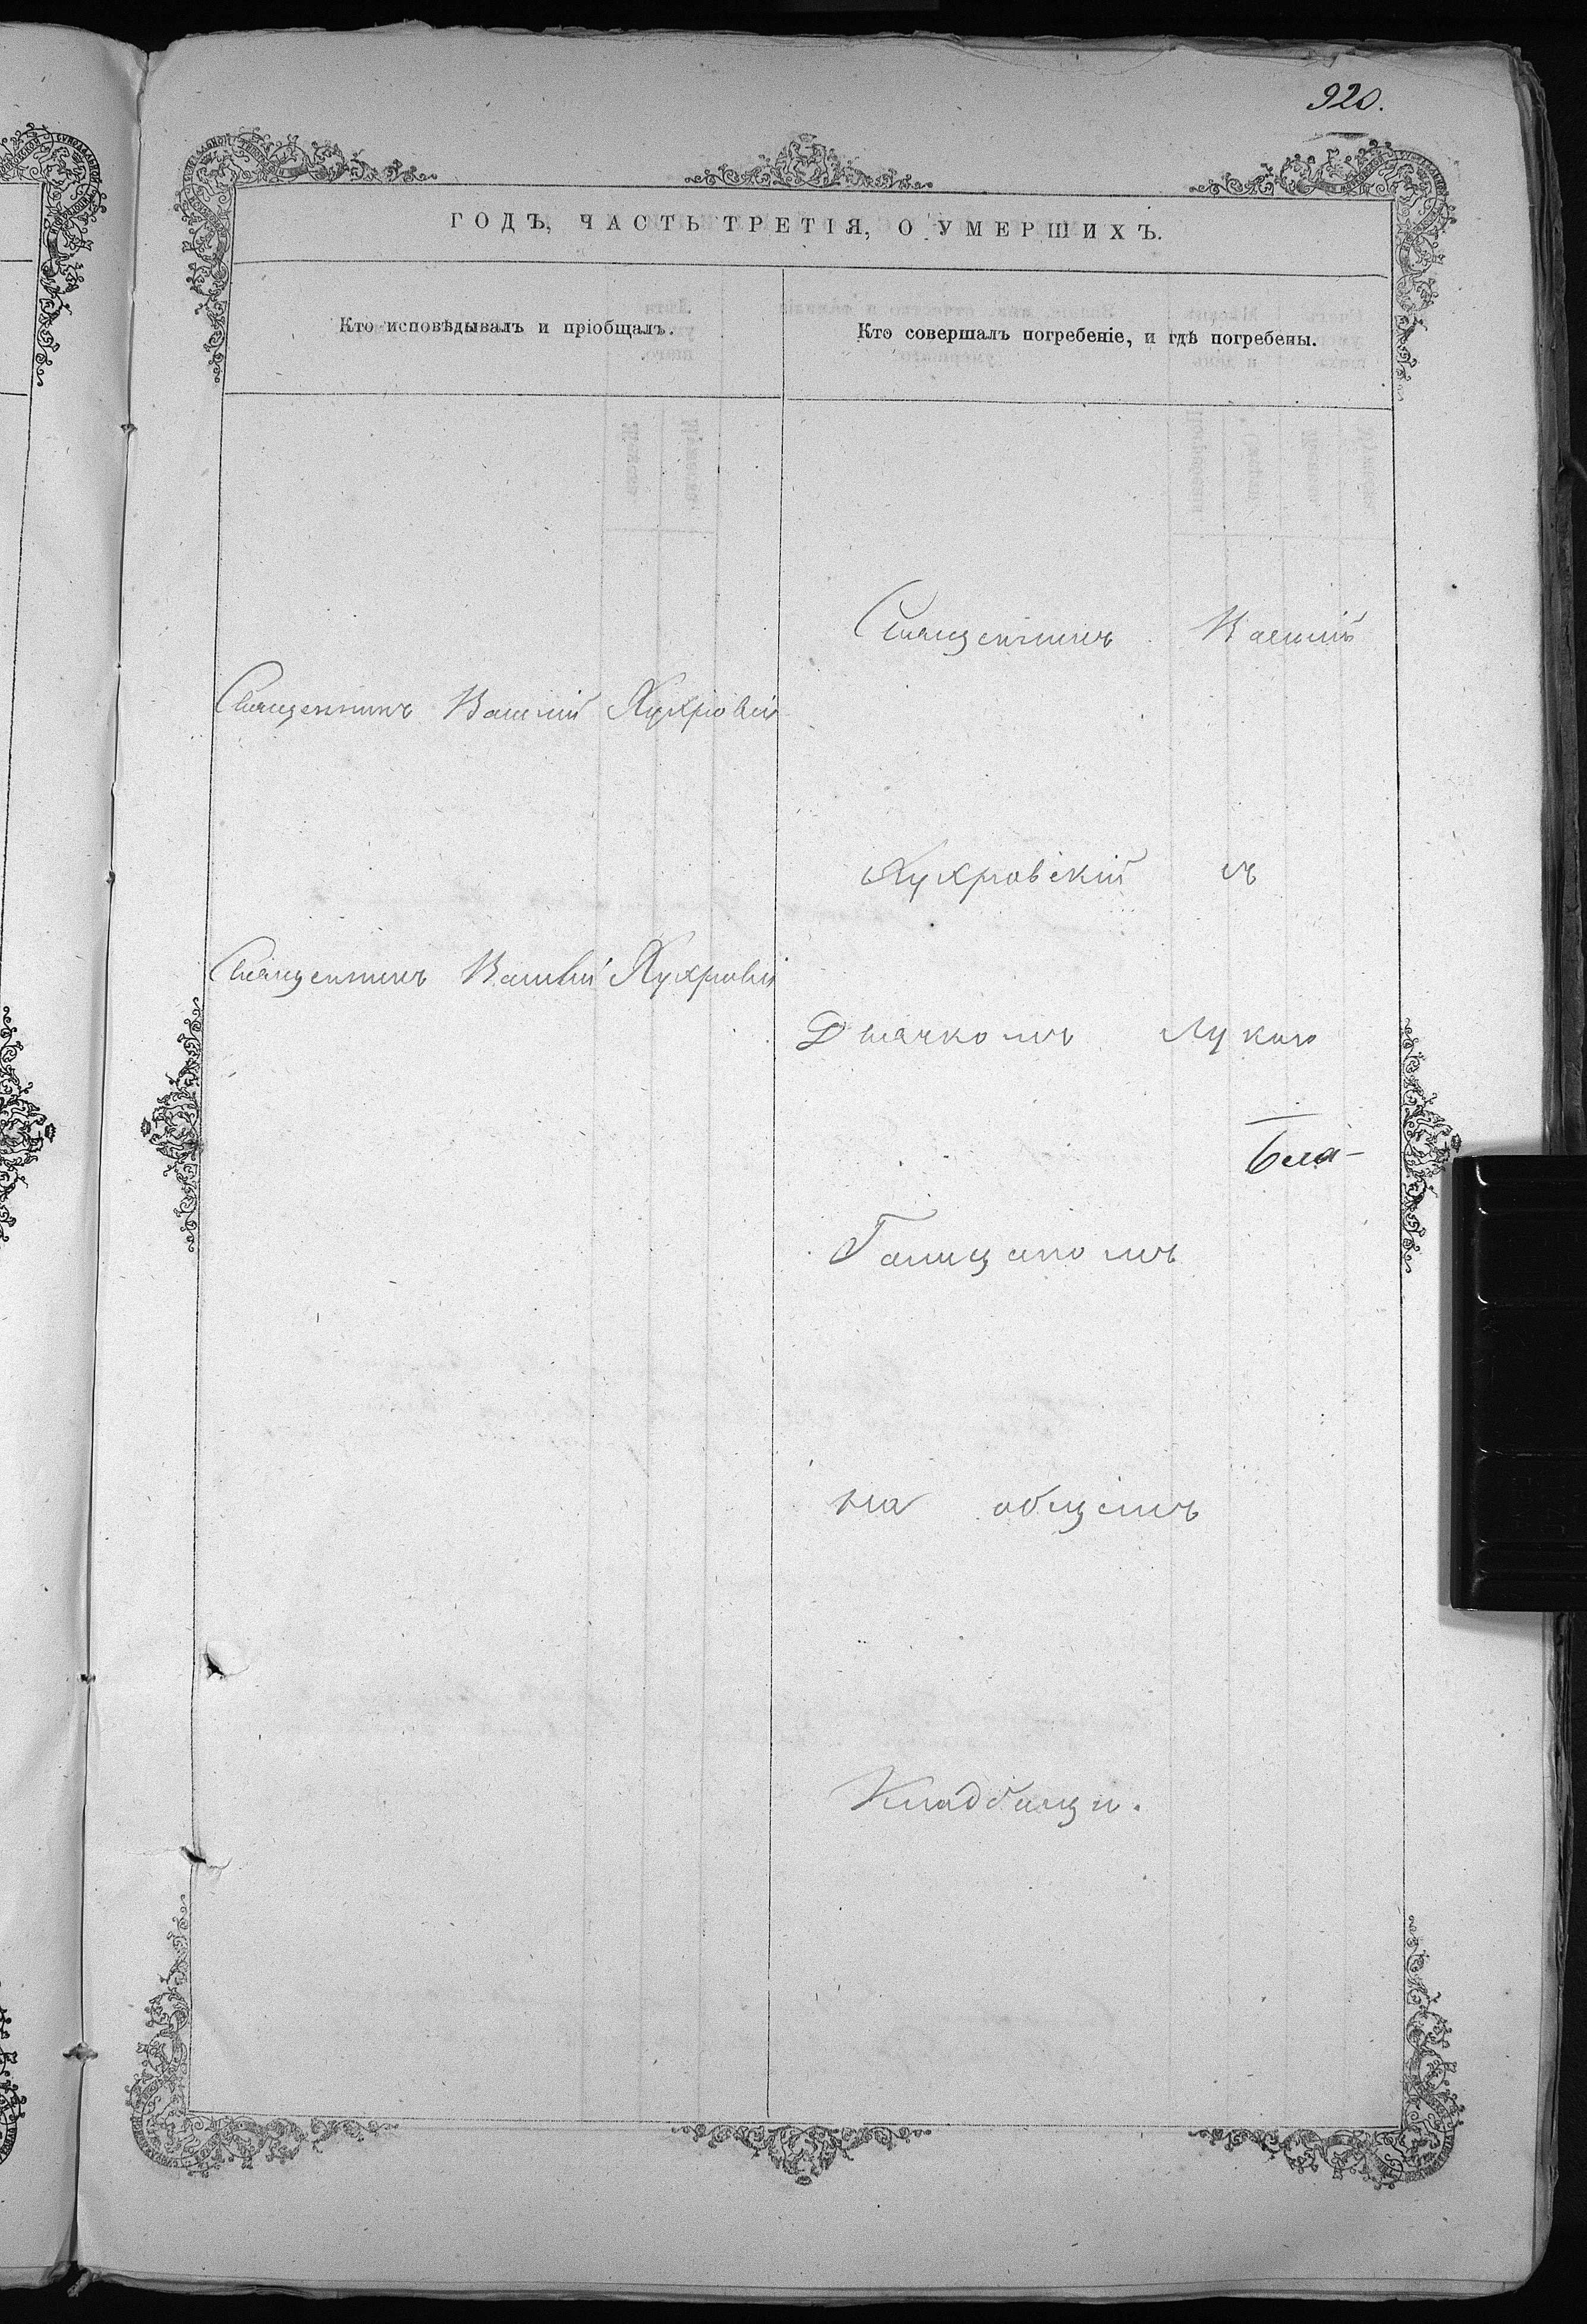 920.
ГОДЪ, ЧАСТЬ ТРЕТІЯ, О УМЕРШИХЪ.
Кто исповѣдывалъ и пріобщалъ.
Кто совершалъ погребеніе, и гдѣ погребены.
Священникъ Василій
Священникъ Василій
съ
Священникъ Василій
Дьячкомъ Лукою
на общемъ
Кладбищи.